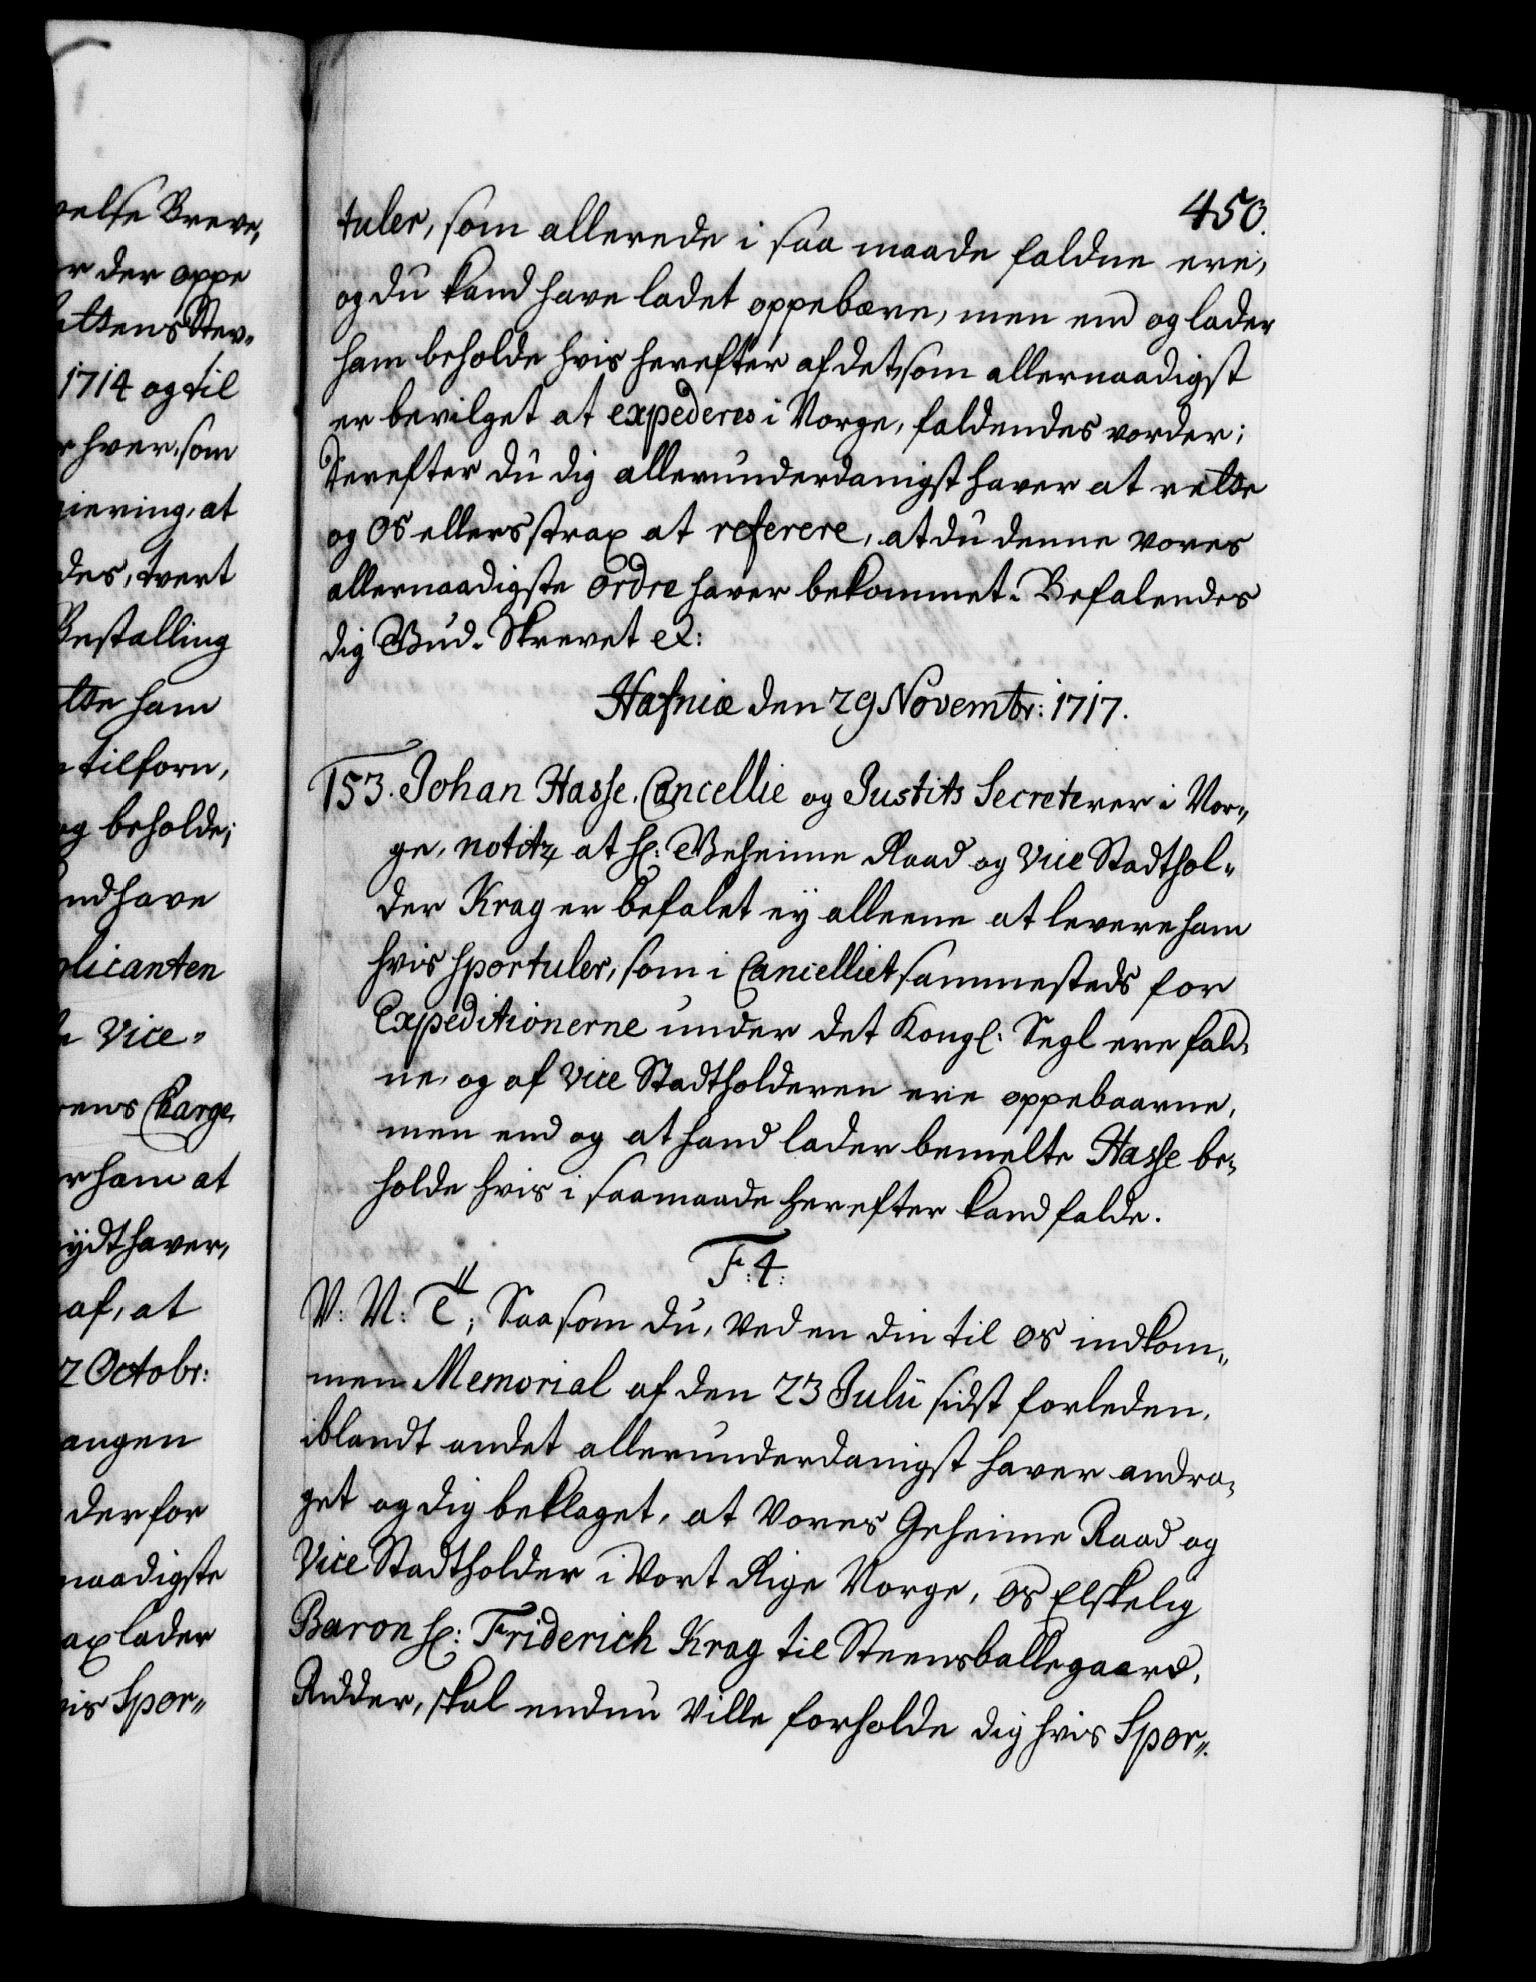 velse Breve,
r der oppe
ettens Stev=
1714 og til
r hver, som
giering, at
des, tvert
Bestalling
tte ham
tilforn,
og beholde;
nd have
plicanten
Vice=
rens Charge
r ham at
ydt haver,
af, at
2 Octobr:
angen
derfor
naadigste
ax lader
is Spor=
450.
tuler, som allerede i saa maade faldne ere,
og du kand have ladet oppebære, men end og lader
ham beholde hvis herefter af det, som allernaadigst
er bevilget at expederes i Norge, faldendes vorder;
Derefter du dig allerunderdanigst haver at rette
og Os ellers strax at referere, at du denne vores
allernaadigste Ordre haver bekommet. Befalendes
dig Gud. Skrevet etc:
Hafniæ den 29 Novembr: 1717.
153. Johan Hasse, Cancellie og Justits Secreterer i Nor=
ge, notitz at Hr: Geheime Raad og Vice Stadthol=
der Krag er befalet ey alleene at levere ham
hvis Sportuler, som i Cancelliet sammesteds for
Expeditionerne under det Kongl: Segl ere fald=
ne, og af Vice Stadtholderen ere oppebaarne,
men end og at hand lader bemelte Hasse be=
holde hvis i saamaade herefter kand falde.
F: 4:
V: N: T; Saasom du, ved en din til Os indkom=
men Memorial af den 23 Julii sidst forleden,
iblandt andet allerunderdanigst haver andra=
get og dig beklaget, at Vores Geheime Raad og
Vice Stadtholder i Vort Rige Norge, Os Elskelig
Baron Hr: Friderich Krag til Steensballegaard,
Ridder, skal endnu ville forholde dig hvis Spor=